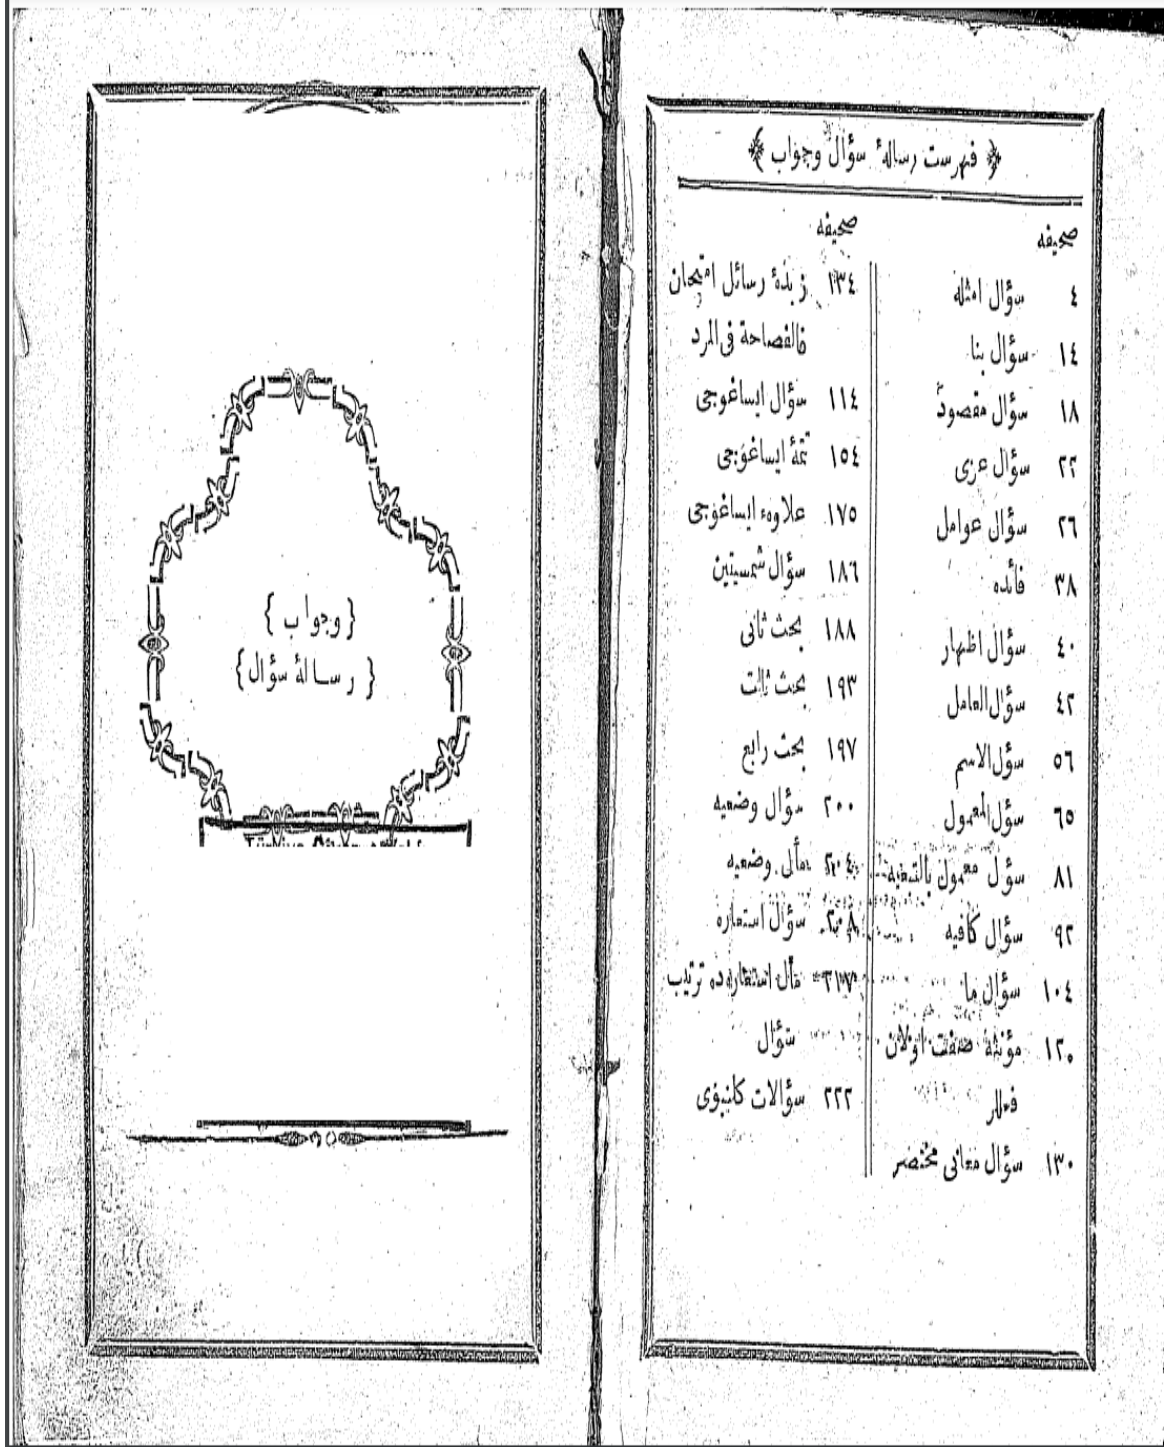 فهرست رسالهٔ سؤال وجواب
صحیفه
٤ سؤال امثله
١٤ سؤال بنا
١٨ سؤال مقصود
٢٢ سؤال عزی
٢٦ سؤال عوامل
٣٨ فائده
٤٠ سؤال اظهار
٤٢ سؤال العامل
٥٦ سؤل الاسم
٦٥ سؤل المعمول
٨١ سؤل معمول بالتبعیه
٩٢ سؤال كافیه
١٠٤ سؤال ما
١٢٠ مؤنثهٔ صفت اولان
فعللر
١٣٠ سؤال معانی مختصر
صحیفه
١٣٤ زبدهٔ رسائل امتحان
فالفصاحة فی المرد
١١٤ سؤال ایساغوجی
١٥٤ تتمهٔ ایساغوجی
١٧٥ علاوهء ایساغوجی
١٨٦ سؤال شمسیتین
١٨٨ بحث ثانی
١٩٣ بحث ثالث
١٩٧ بحث رابع
٢٠٠ سؤال وضعیه
٢٠٤ مألی وضعیه
٢٠٨ سؤال استعاره
مأل استعاره‌ده ترتیب
سؤال
٢٢٢ سؤالات كلنبوی
{ وجواب }
{ رسالهٔ سؤال }